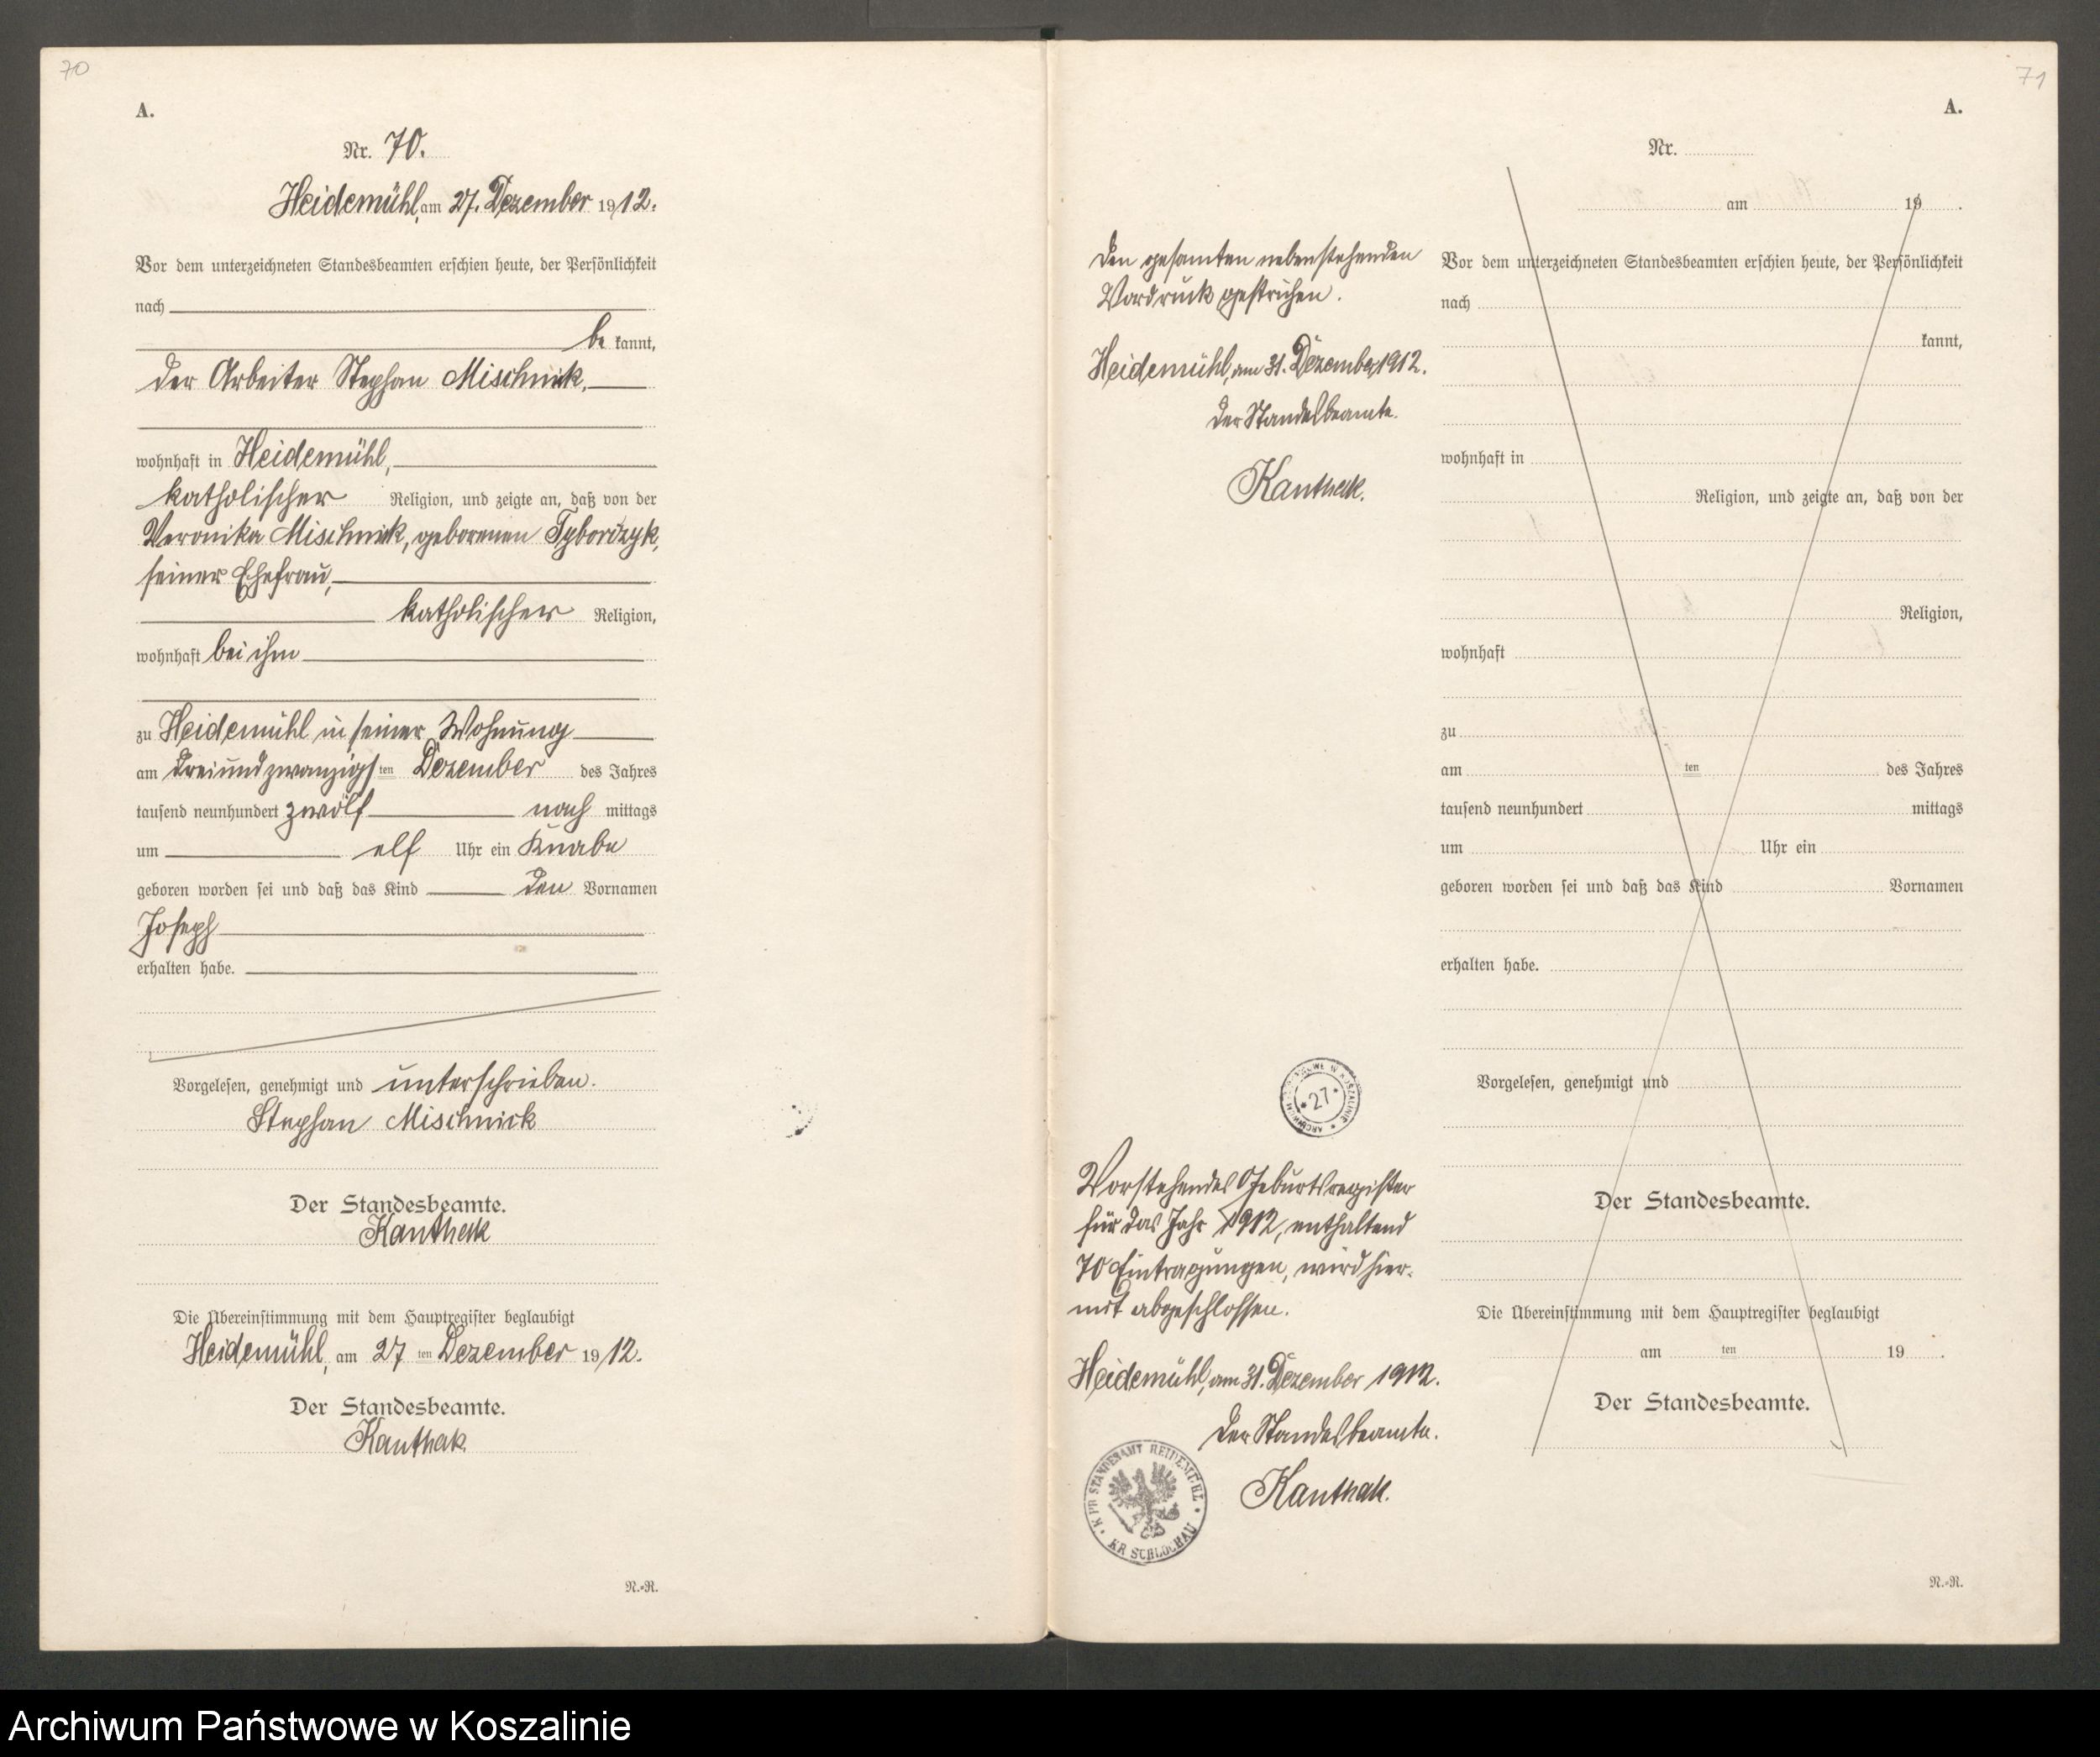 70
A.
Nr. 70.
Heidemühl, am 27. Dezember 1912.
Vor dem unterzeichneten Standesbeamten erschien heute, der Persönlichkeit
nach
be kannt,
der Arbeiter Stephan Mischnick,
wohnhaft in Heidemühl,
katholischer Religion, und zeigte an, daß von der
Veronika Mischnick, geborenen Tyborczyk,
seiner Ehefrau,
katholischer Religion,
wohnhaft bei ihm
zu Heidemühl in seiner Wohnung
am dreiundzwanzigsten Dezember des Jahres
tausend neunhundert zwölf nach mittags
um elf Uhr ein Knabe
geboren worden sei und daß das Kind den Vornamen
Joseph
erhalten habe.
Vorgelesen, genehmigt und unterschrieben.
Stephan Mischnick
Der Standesbeamte.
Kanthak
Die Übereinstimmung mit dem Hauptregister beglaubigt
Heidemühl, am 27 ten Dezember 1912.
Der Standesbeamte.
Kanthak
N.-R.
71
A.
Den gesamten nebenstehenden
Vordruck gestrichen.
Heidemühl, am 31. Dezember 1912.
Der Standesbeamte.
Kanthak.
ARCHIWUM PAŃSTWOWE W KOSZALINIE
27
Vorstehendes Geburtsregister
für das Jahr 1912, enthaltend
70 Eintragungen, wird hier-
mit abgeschlossen.
Heidemühl, am 31. Dezember 1912.
Der Standesbeamte.
Kanthak.
K. PR. STANDESAMT HEIDEMÜHL
KR. SCHLOCHAU
Nr.
am 19 .
Vor dem unterzeichneten Standesbeamten erschien heute, der Persönlichkeit
nach
kannt,
wohnhaft in
Religion, und zeigte an, daß von der
Religion,
wohnhaft
zu
am ten des Jahres
tausend neunhundert mittags
um Uhr ein
geboren worden sei und daß das Kind Vornamen
erhalten habe.
Vorgelesen, genehmigt und
Der Standesbeamte.
Die Übereinstimmung mit dem Hauptregister beglaubigt
am ten 19 .
Der Standesbeamte.
N.-R.
Archiwum Państwowe w Koszalinie